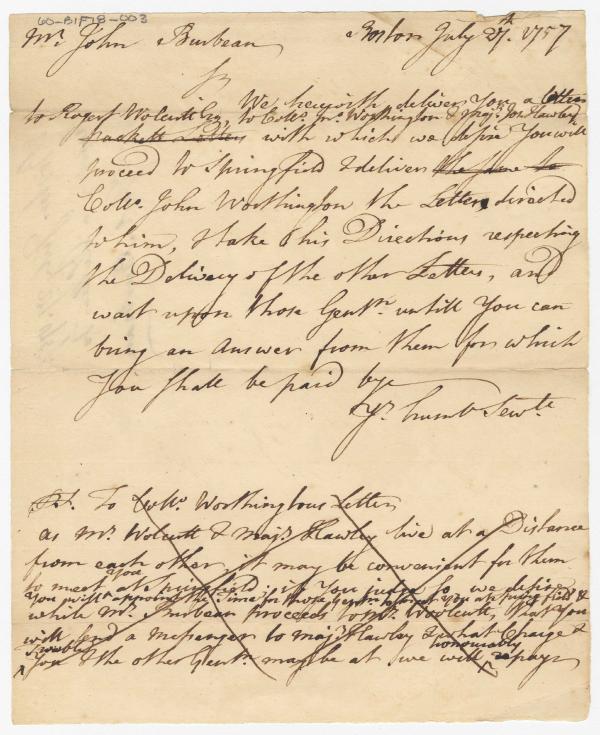 60-B1F78-003
Mr. John Burbean Boston July 27th. 1757
Sr
We herewith deliver You a letters
to Roger Wolcutt Esq, to Collo. Jno. Worthington & Majr. Jos Hawley
packett Letters with which we desire You will
proceed to Springfield & deliver the same to
Collo. John Worthington the Letters directed
to him, & take his Directions respecting
the Delivery of the other Letters, and
wait upon those Gentn. untill You can
bring an Answer from them for which
You shall be paid by
Yr. humb Servts.
P.S. To Collo. Worthingtons Letter
as Mr. Wolcutt & Majr. Hawley live at a Distance
from each other, it may be convenient for them
to meet You at Springfield, if You judge so, we desire
You will appoint the time for those Gentn. to meet You at Springfield &
while Mr. Burbean proceeds to Mr. Woolcutt, that You
will send a messenger to Majr. Hawley & what Charge &
trouble honourably
You & the other Gentn. may be at we will repay